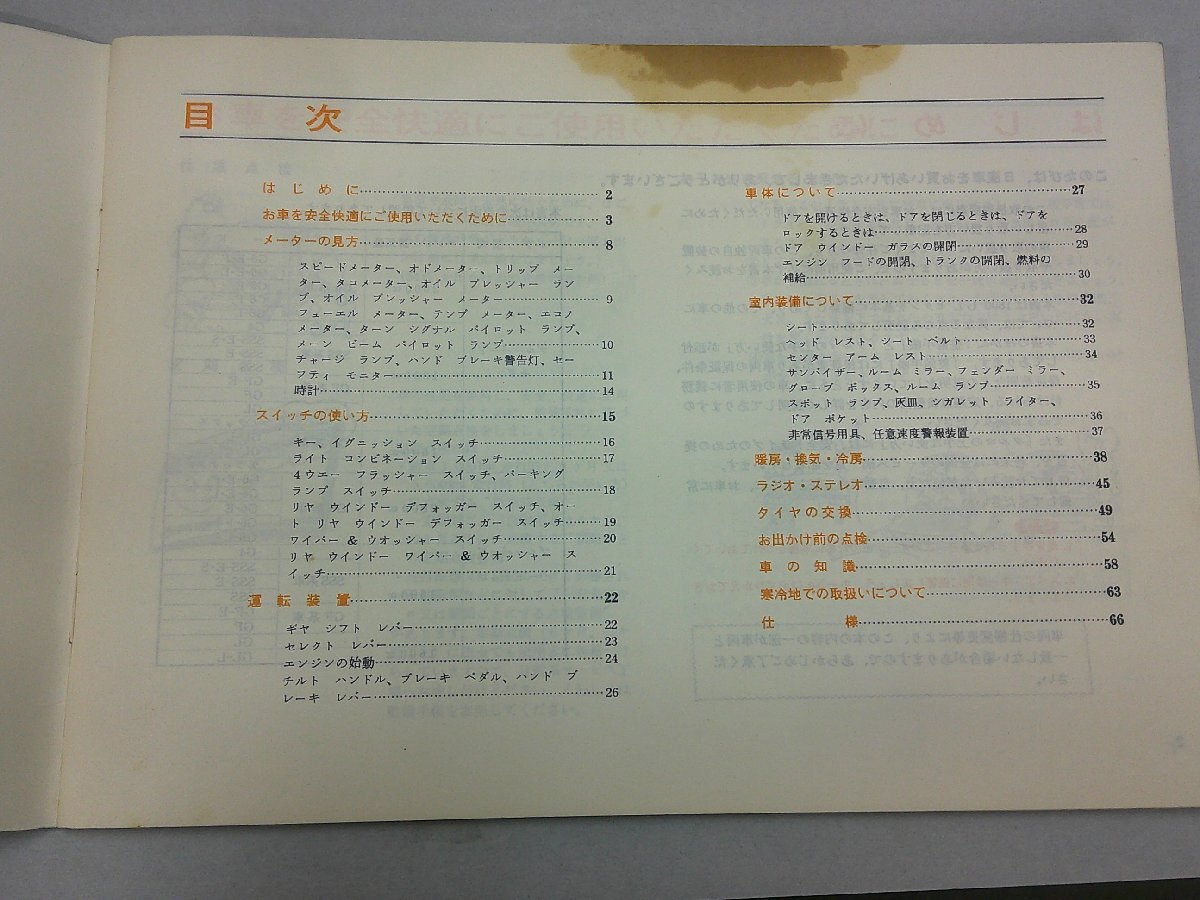 目次
はじめに……2
お車を安全快適にご使用いただくために……3
メーターの見方……8
スピードメーター、オドメーター、トリップ メー
ター、タコメーター、オイル プレッシャー ラン
プ、オイル プレッシャー メーター……9
フューエル メーター、テンプ メーター、エコノ
メーター、ターン シグナル パイロット ランプ、
メーン ビーム パイロット ランプ……10
チャージ ランプ、ハンド ブレーキ警告灯、セー
フティ モニター……11
時計……14
スイッチの使い方……15
キー、イグニッション スイッチ……16
ライト コンビネーション スイッチ……17
4ウエー フラッシャー スイッチ、パーキング
ランプ スイッチ……18
リヤ ウインドー デフォッガー スイッチ、オー
ト リヤ ウインドー デフォッガー スイッチ……19
ワイパー & ウオッシャー スイッチ……20
リヤ ウインドー ワイパー & ウオッシャー ス
イッチ……21
運転装置……22
ギヤ シフト レバー……22
セレクト レバー……23
エンジンの始動……24
チルト ハンドル、ブレーキ ペダル、ハンド ブ
レーキ レバー……26
車体について……27
ドアを開けるときは、ドアを閉じるときは、ドアを
ロックするときは……28
ドア ウインドー ガラスの開閉……29
エンジン フードの開閉、トランクの開閉、燃料の
補給……30
室内装備について……32
シート……32
ヘッド レスト、シート ベルト……33
センター アーム レスト……34
サンバイザー、ルーム ミラー、フェンダー ミラー、
グローブ ボックス、ルーム ランプ……35
スポット ランプ、灰皿、シガレット ライター、
ドア ポケット……36
非常信号用具、任意速度警報装置……37
暖房・換気・冷房……38
ラジオ・ステレオ……45
タイヤの交換……49
お出かけ前の点検……54
車の知識……58
寒冷地での取扱いについて……63
仕様……66